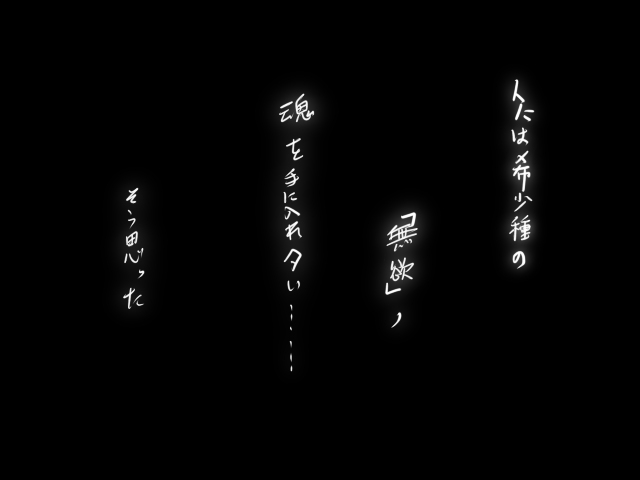 人には希少種の
「無欲」ノ
魂を手に入れタい……
そう思った